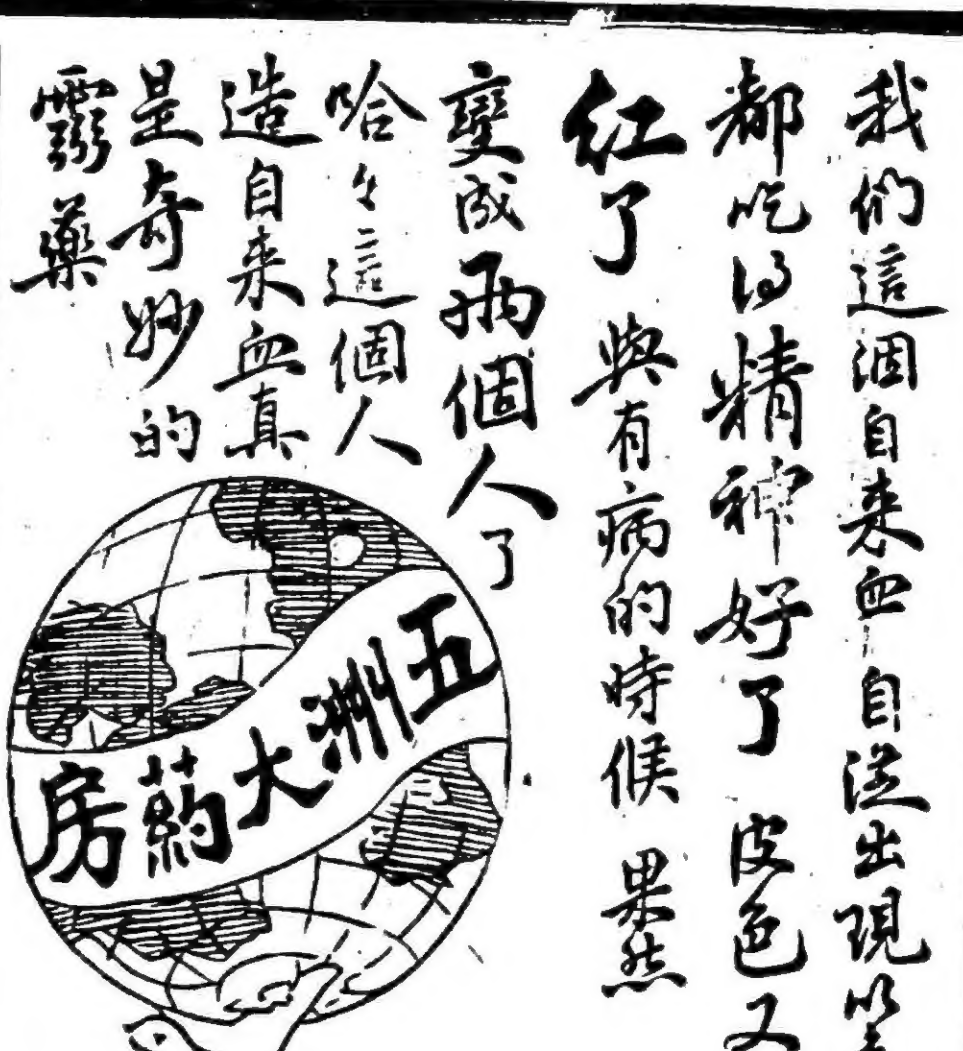 我們這個自來血自從出現以
都吃得精神好了皮色又
紅了與有病的時候果然
變成兩個人了
哈々這個人
造自來血真
是奇妙的
靈藥
五洲大葯房